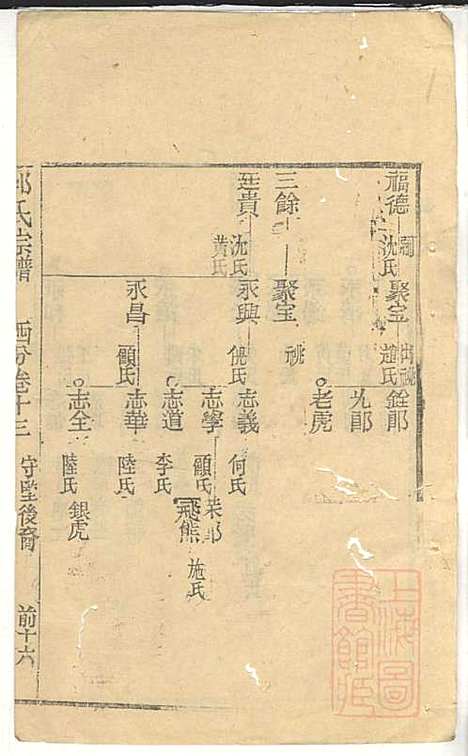 福德 嗣 沈氏 聚宝 出祧 趙氏 銓郎
九郎
老虎
三餘 聚宝 祧
廷貴 沈氏 黄氏 永興 倪氏 志義 何氏
志學 顧氏 荣郎 施氏
飛熊
志道 李氏
永昌 顧氏 志華 陸氏
志全 陸氏 銀虎
氏宗譜 西分卷十三 守堅後裔 前十六
上海圖
書館臧